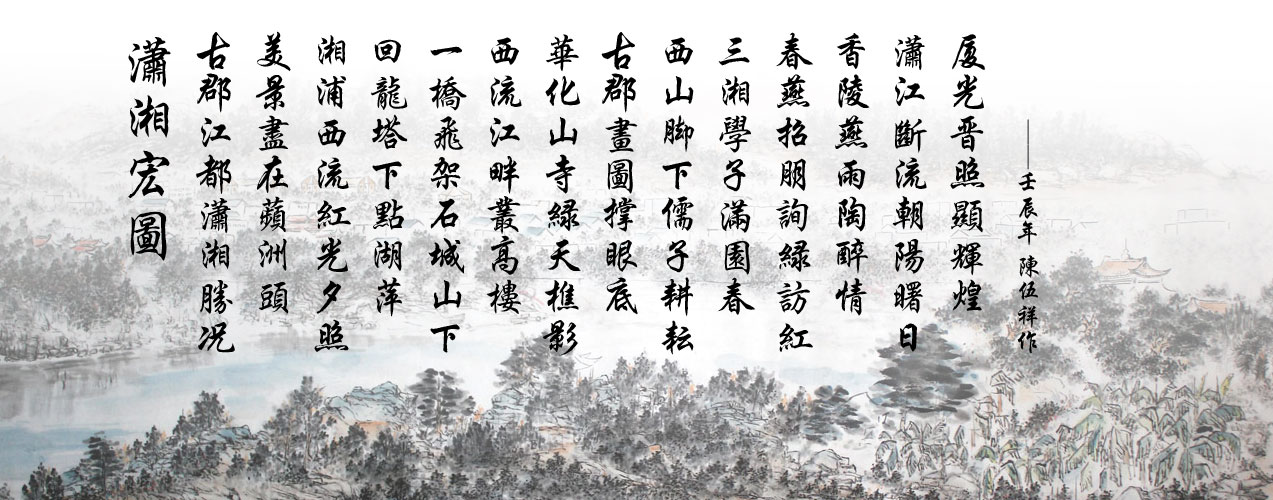 瀟湘宏圖
古郡江都瀟湘勝况
美景盡在蘋洲頭
湘浦西流紅光夕照
回龍塔下點湖萍
一橋飛架石城山下
西流江畔叢高樓
華化山寺綠天樵影
古郡畫圖撑眼底
西山脚下儒子耕耘
三湘學子滿園春
春燕招朋詢綠訪紅
香陵燕雨陶醉情
瀟江斷流朝陽曙日
厦光晋照顯輝煌
——壬辰年 陳伍祥作